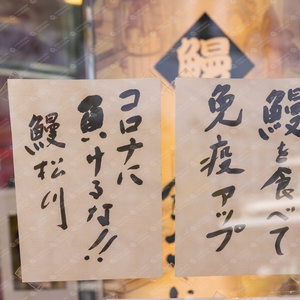 鰻
鰻を食べて
免疫アップ
コロナに
負けるな!!
鰻松川